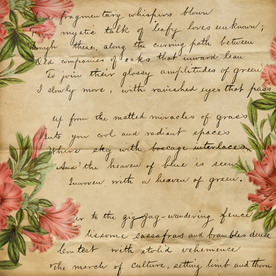 fragmentary whispers blown
mystic talk of leafy loves unknown;
these, along the curving path between
Old companies of oaks that inward lean
To join their glossy amplitudes of green
I slowly move, with ravished eyes that pass
up from the matted miracles of grass
you cool and radiant spaces
Where sky with boscage interlaces,
And the heaven of blue is seen
Inwoven with a heaven of green.
to the zigzag-wandering fence
sassafras and brambles dense
Contest with stolid vehemence
The march of culture, setting limb and thorn